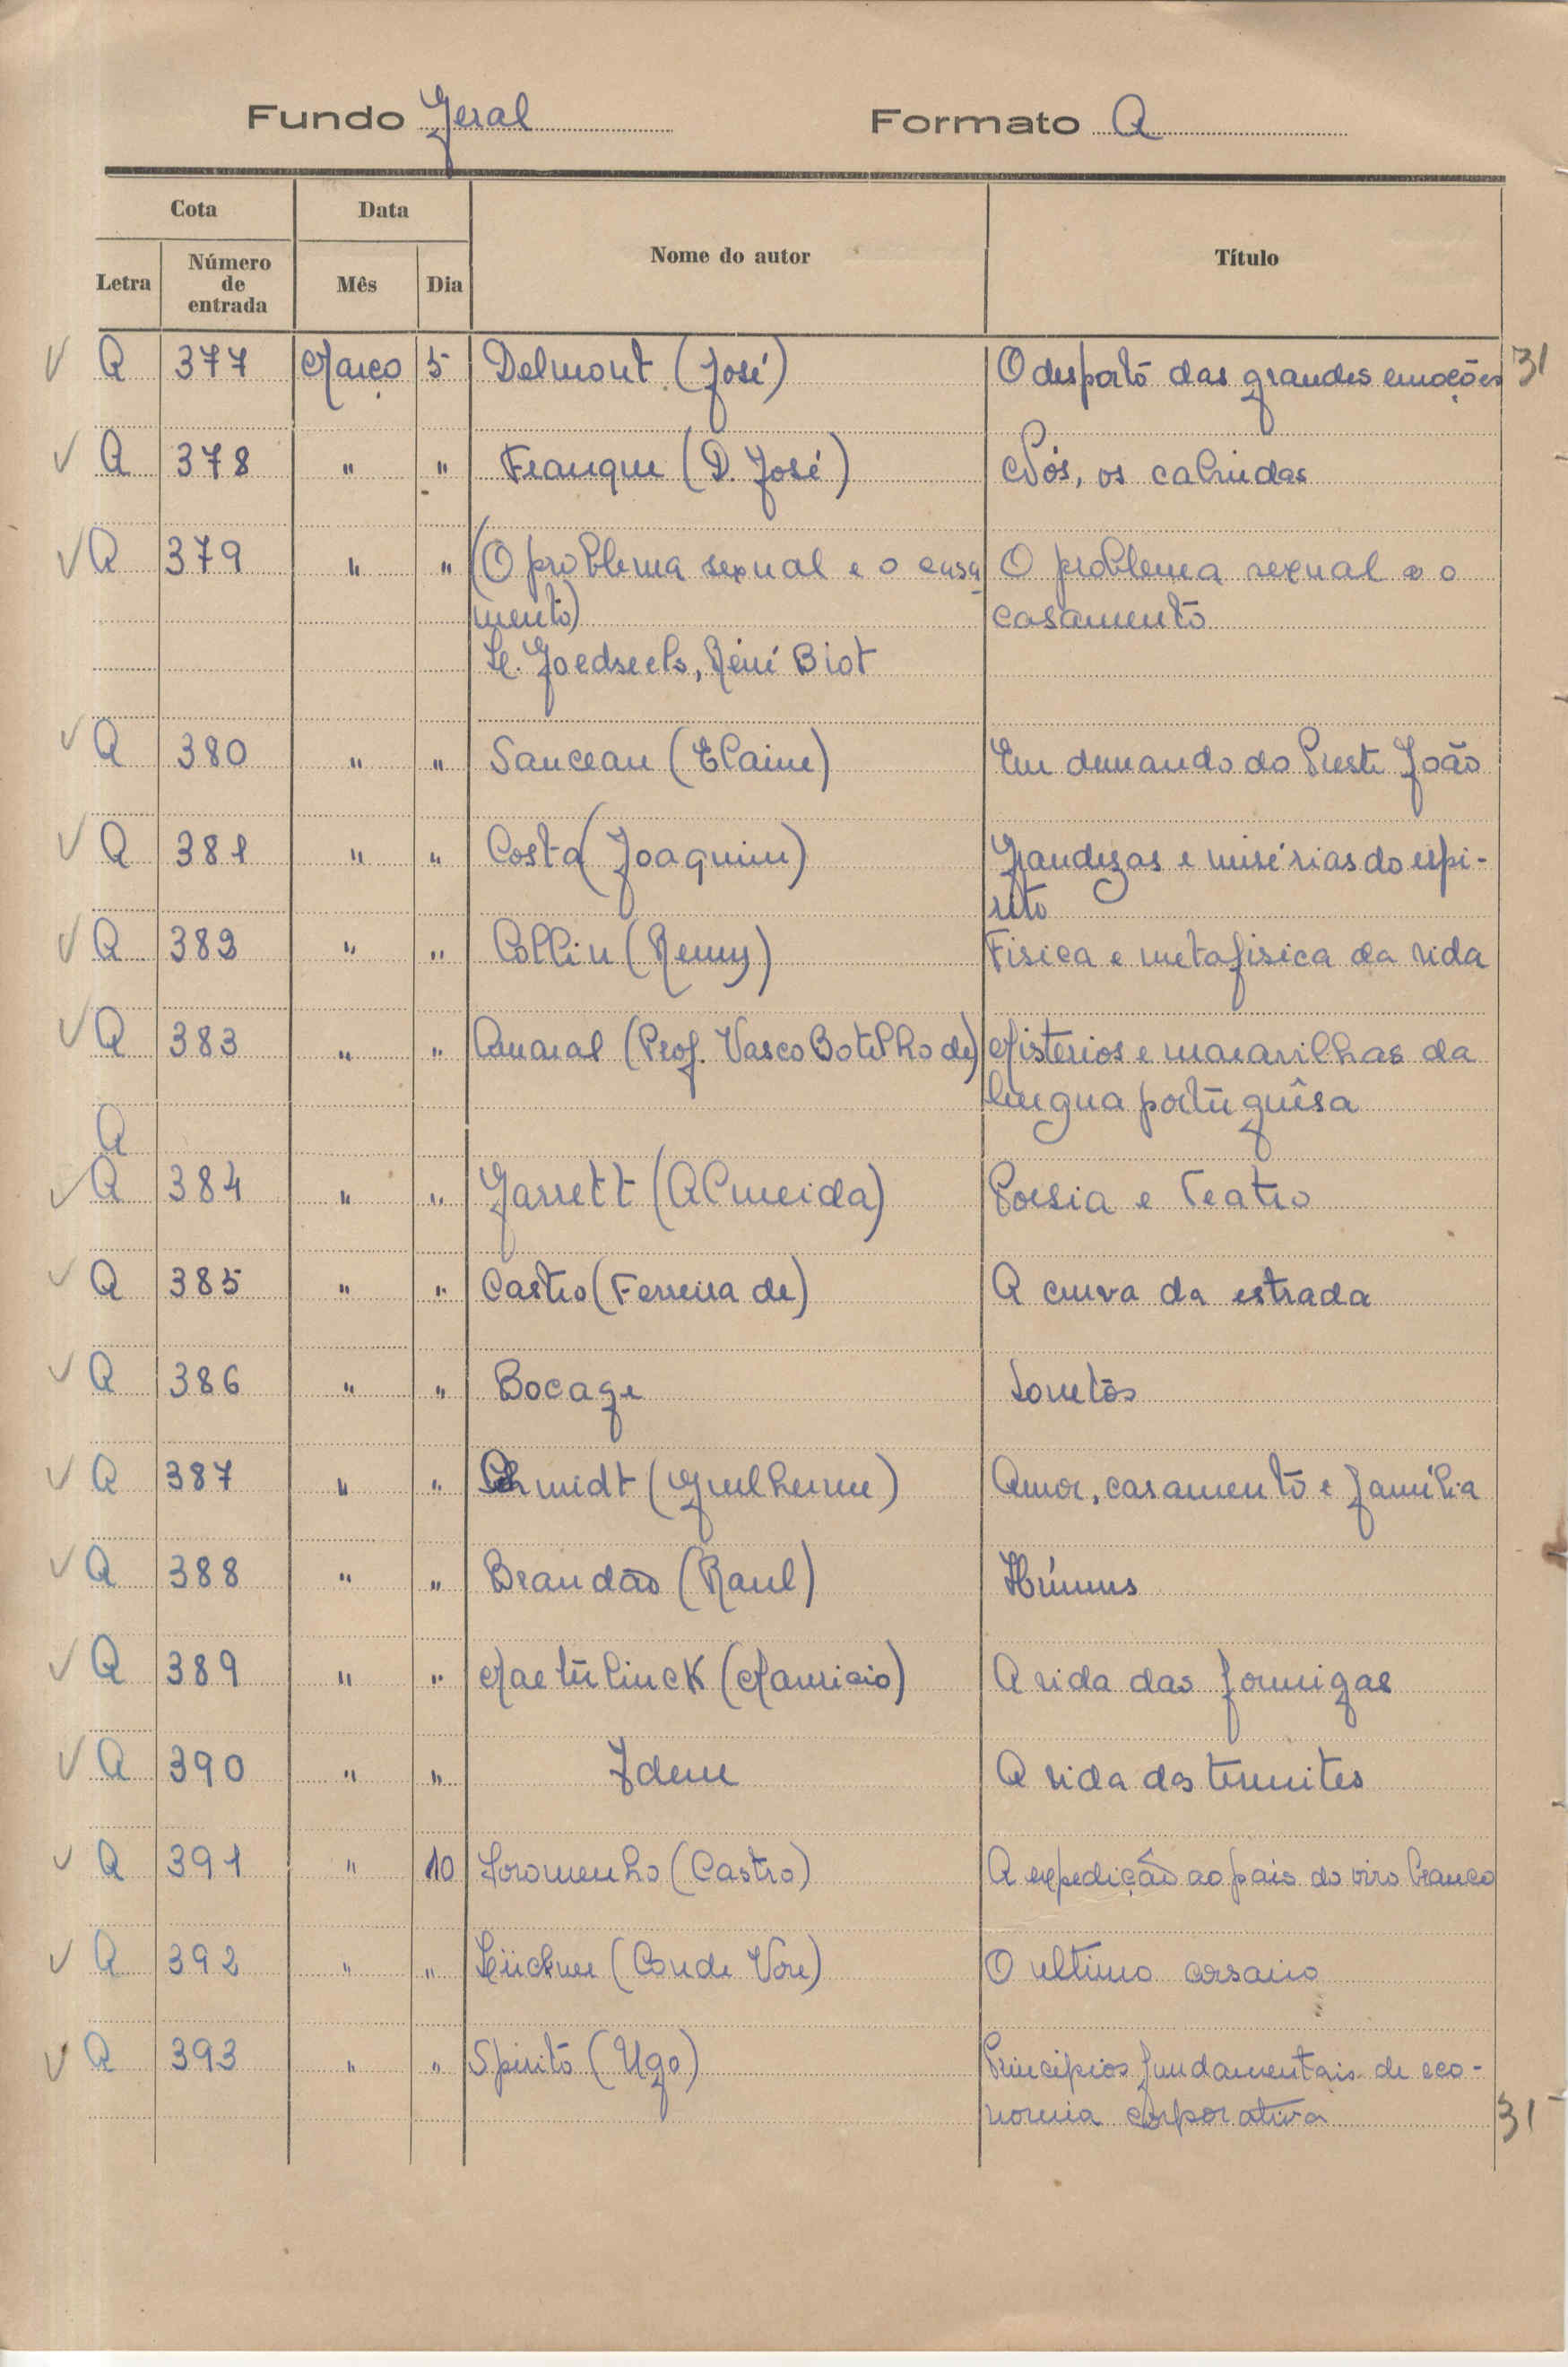 Fundo Geral Formato A
Cota Data Nome do autor Título
Letra Número de entrada Mês Dia
✓ A 377 Março 5 Delmont (José) O desporto das grandes emoções 31
✓ A 378 " " Franque (D. José) Nós, os cabindas
✓ A 379 " " (O problema sexual e o casa- O problema sexual e o
mento) casamento
H. Goedseels, Réné Biot
✓ A 380 " " Sanceau (Elaine) Em demanda do Preste João
✓ A 381 " " Costa (Joaquim) Grandezas e misérias do espi-
rito
✓ A 382 " " Collin (Remy) Fisica e metafisica da vida
✓ A 383 " " Amaral (Prof. Vasco Botelho de) Misterios e maravilhas da
lingua portuguêsa
A
✓ A 384 " " Garrett (Almeida) Poesia e Teatro
✓ A 385 " " Castro (Ferreira de) A curva da estrada
✓ A 386 " " Bocage Sonetos
✓ A 387 " " Schmidt (Guilherme) Amor, casamento e família
✓ A 388 " " Brandão (Raul) Húmus
✓ A 389 " " Maeterlinck (Mauricio) A vida das formigas
✓ A 390 " " Idem A vida das termites
✓ A 391 " 10 Soromenho (Castro) A expedição ao pais do oiro branco
✓ A 392 " " (Conde Von) O ultimo corsario
✓ A 393 " " Spirito (Ugo) Principios fundamentais de eco-
nomia corporativa 31